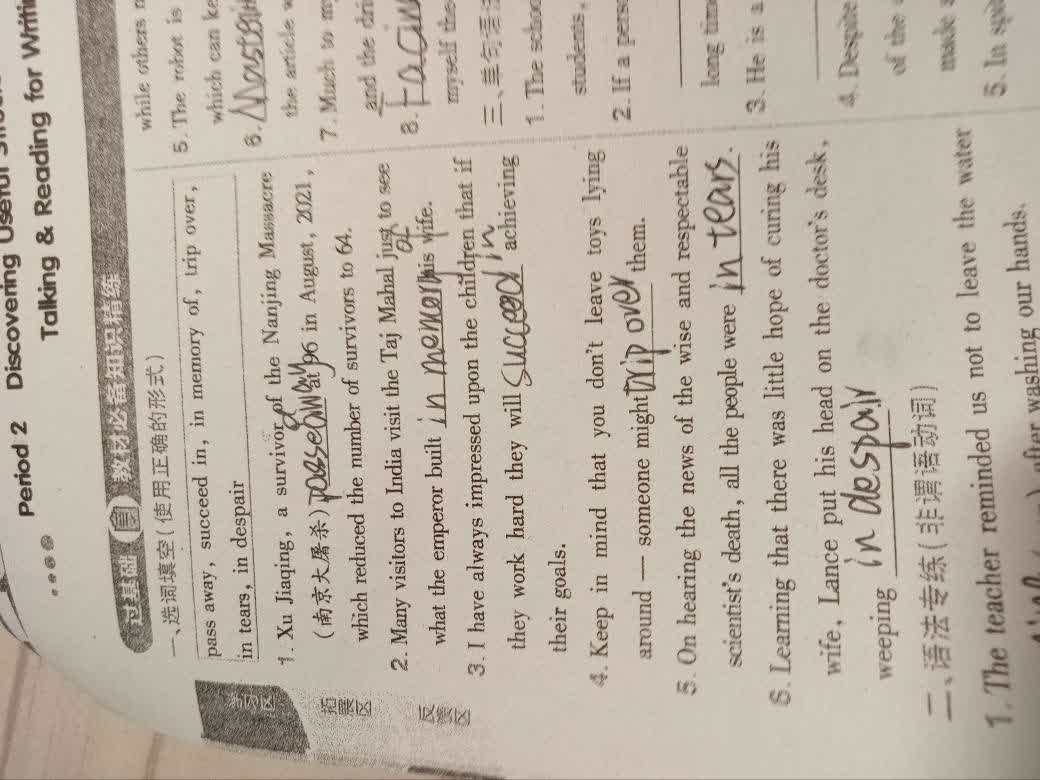 Period 2 Discovering Useful
Talking & Reading for
过基础 教材必备知识精练
一、选词填空(使用正确的形式)
pass away, succeed in, in memory of, trip over,
in tears, in despair
1. Xu Jiaqing, a survivor of the Nanjing Massacre
(南京大屠杀) passed away at 96 in August, 2021,
which reduced the number of survivors to 64.
2. Many visitors to India visit the Taj Mahal just to see
what the emperor built in memory of his wife.
3. I have always impressed upon the children that if
they work hard they will succeed in achieving
their goals.
4. Keep in mind that you don't leave toys lying
around — someone might trip over them.
5. On hearing the news of the wise and respectable
scientist's death, all the people were in tears.
6. Learning that there was little hope of curing his
wife, Lance put his head on the doctor's desk,
weeping in despair
二、语法专练(非谓语动词)
1. The teacher reminded us not to leave the water
after washing our hands.
练习区
拓展区
反馈区
while others
5. The robot is
which can
6.
the article
7. Much to my
and the
8. Facing
myself
三、单句语法
1. The
students,
2. If a
long time
3. He is a
4. Despite
of the
made
5. In